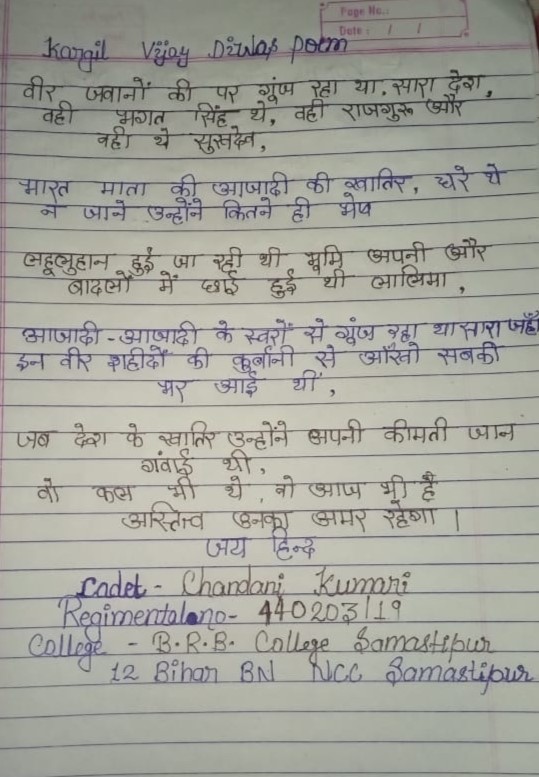 Page No.:
Date: / /
Kargil Vijay Diwas Poem
वीर जवानों की पर गूंज रहा था, सारा देश,
वही भगत सिंह थे, वही राजगुरू और
वही थे सुखदेव,
भारत माता की आजादी की खातिर, धरे थे
न जाने उन्होंने कितने ही भेष
लहूलुहान हुई जा रही थी भूमि अपनी और
बादलों में छाई हुई थी लालिमा,
आजादी-आजादी के स्वरों से गूंज रहा था सारा जहाँ
इन वीर शहीदों की कुर्बानी से आँखो सबकी
भर आई थीं,
जब देश के खातिर उन्होंने अपनी कीमती जान
गंवाई थी,
वो कल भी थे, वो आज भी है
अस्तित्व उनका अमर रहेगा।
जय हिन्द
Cadet - Chandani Kumari
Regimental no- 440203/19
College - B.R.B. College Samastipur
12 Bihar BN NCC Samastipur